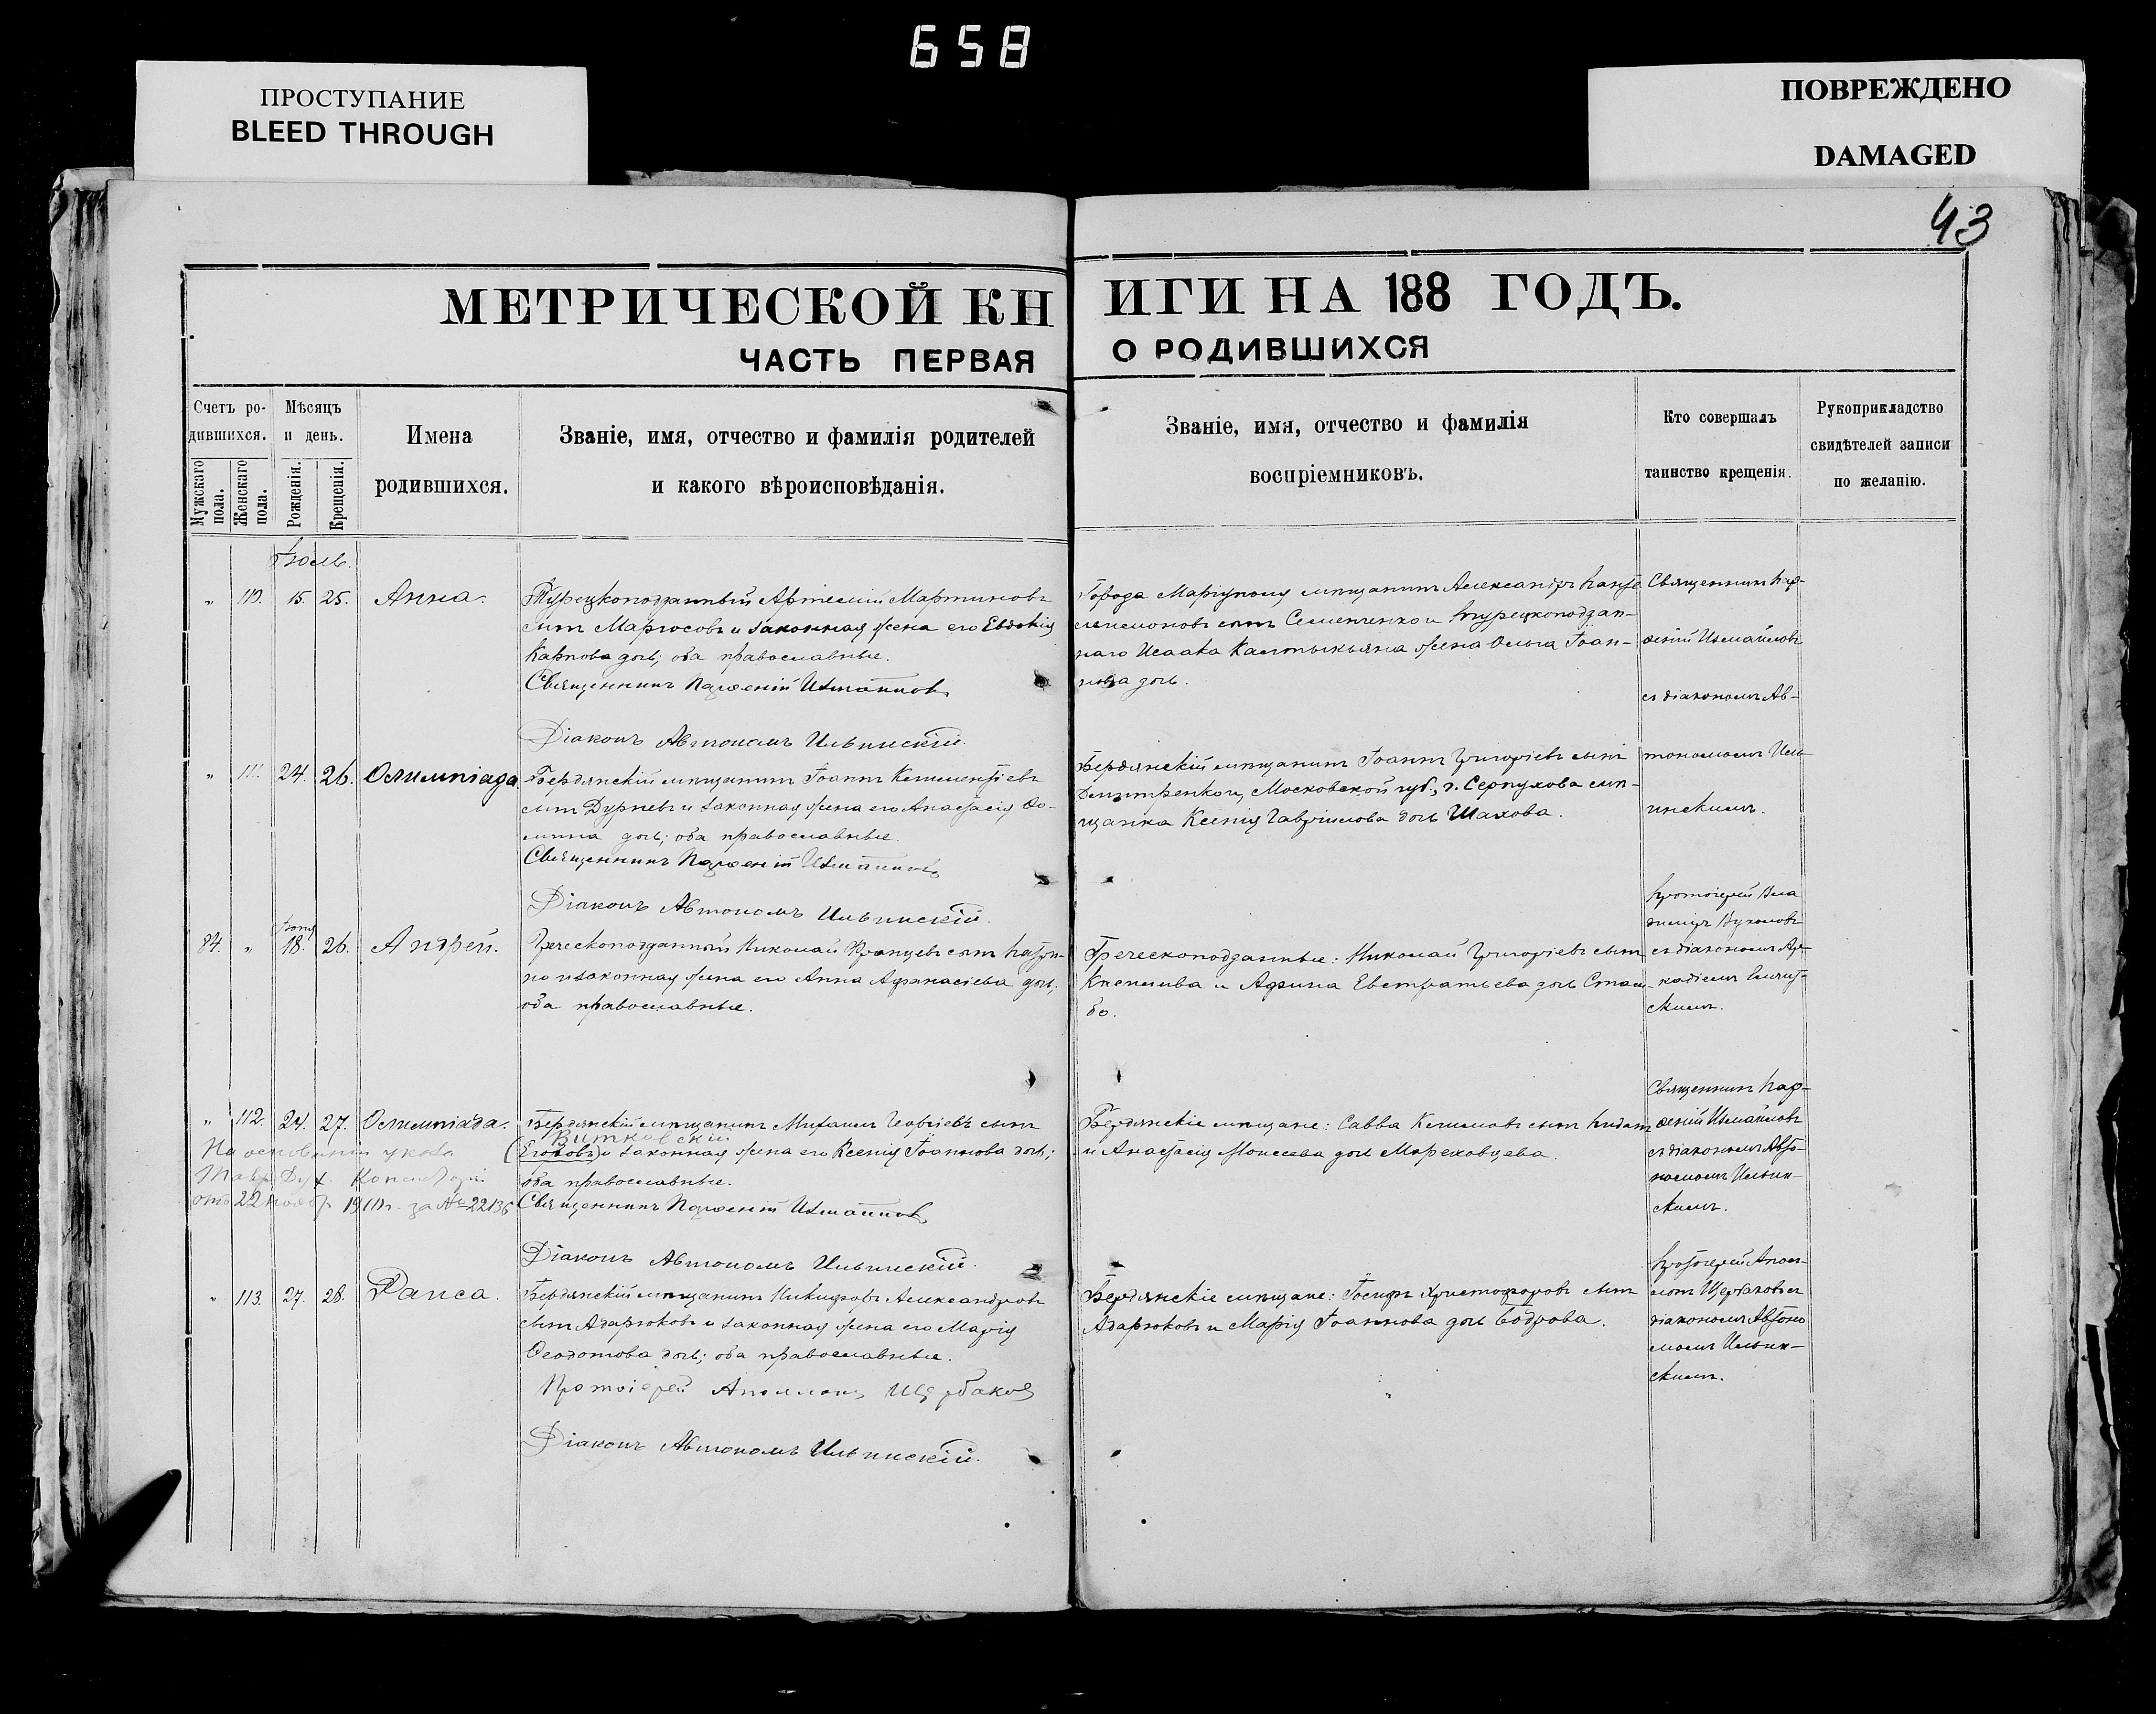 658
ПРОСТУПАНИЕ
BLEED THROUGH
ПОВРЕЖДЕНО
DAMAGED
43
МЕТРИЧЕСКОЙ КНИГИ НА 188 ГОДЪ.
ЧАСТЬ ПЕРВАЯ О РОДИВШИХСЯ
Счетъ ро-
дившихся.
Мужскаго пола.
Женскаго пола.
Мѣсяцъ
и день.
Рожденія.
Крещенія.
Имена
родившихся.
Званіе, имя, отчество и фамилія родителей
и какого вѣроисповѣданія.
Званіе, имя, отчество и фамилія
воспріемниковъ.
Кто совершалъ
таинство крещенія.
Рукоприкладство
свидѣтелей записи
по желанію.
Іюль.
" 110. 15. 25. Анна.
Турецкоподданный Артемій Мартиновъ
сынъ Маргосовъ и законная жена его Евдокія
Карпова дочь; оба православные.
Священникъ Парѳеній Измаиловъ
Діаконъ Автономъ Ильинскій.
Города Маріуполя мѣщанинъ Александръ
сынъ Семенченко и турецкоподдан-
наго Исаака жена Ольга Іоан-
нова дочь.
Священникъ Пар-
ѳеній Измаиловъ
съ діакономъ Ав-
тономомъ Иль-
инскимъ.
" 111. 24. 26. Олимпіада.
Бердянскій мѣщанинъ Іоаннъ Климентіевъ
сынъ Дурневъ и законная жена его Анастасія Ѳо-
мина дочь; оба православные.
Священникъ Парѳеній Измаиловъ
Діаконъ Автономъ Ильинскій.
Бердянскій мѣщанинъ Іоаннъ Григоріевъ сынъ
Димитренко и Московской губ., г. Серпухова мѣ-
щанка Ксенія Гаврилова дочь Шахова.
84. " 18. 26. Андрей.
Греческоподданный Николай сынъ
но и законная жена его Анна Аѳанасіева дочь;
оба православные.
Греческоподданные: Николай Григоріевъ сынъ
и Аѳина Евстратьева дочь Стам-
бо.
Протоіерей Вла
диміръ Вуколовъ
съ діакономъ Ар-
кадіемъ
скимъ.
" 112. 24. 27. Олимпіада.
Бердянскій мѣщанинъ Михаилъ Георгіевъ сынъ
Витковскій
(Егоровъ) и законная жена его Ксенія Іоаннова дочь;
оба православные.
Священникъ Парѳеній Измаиловъ
Діаконъ Автономъ Ильинскій.
На основаніи указа
Тавр. Дух. Консисторіи
отъ 22 нояб. за № 22136
Бердянскіе мѣщане: Савва Климовъ сынъ
и Анастасія Моисеева дочь Мореховцева.
Священникъ Пар-
ѳеній Измаиловъ
съ діакономъ Авто-
номомъ Ильин-
скимъ.
" 113. 27. 28. Раиса.
Бердянскій мѣщанинъ Никифоръ Александровъ
сынъ Адарюковъ и законная жена его Марія
Ѳеодотова дочь; оба православные.
Протоіерей Аполлонъ Щербаковъ
Діаконъ Автономъ Ильинскій.
Бердянскіе мѣщане: Іосифъ Христофоровъ сынъ
Адарюковъ и Марія Іоаннова дочь Бодрова.
Протоіерей Апол-
лонъ Щербаковъ съ
діакономъ Автоно
момъ Ильин-
скимъ.